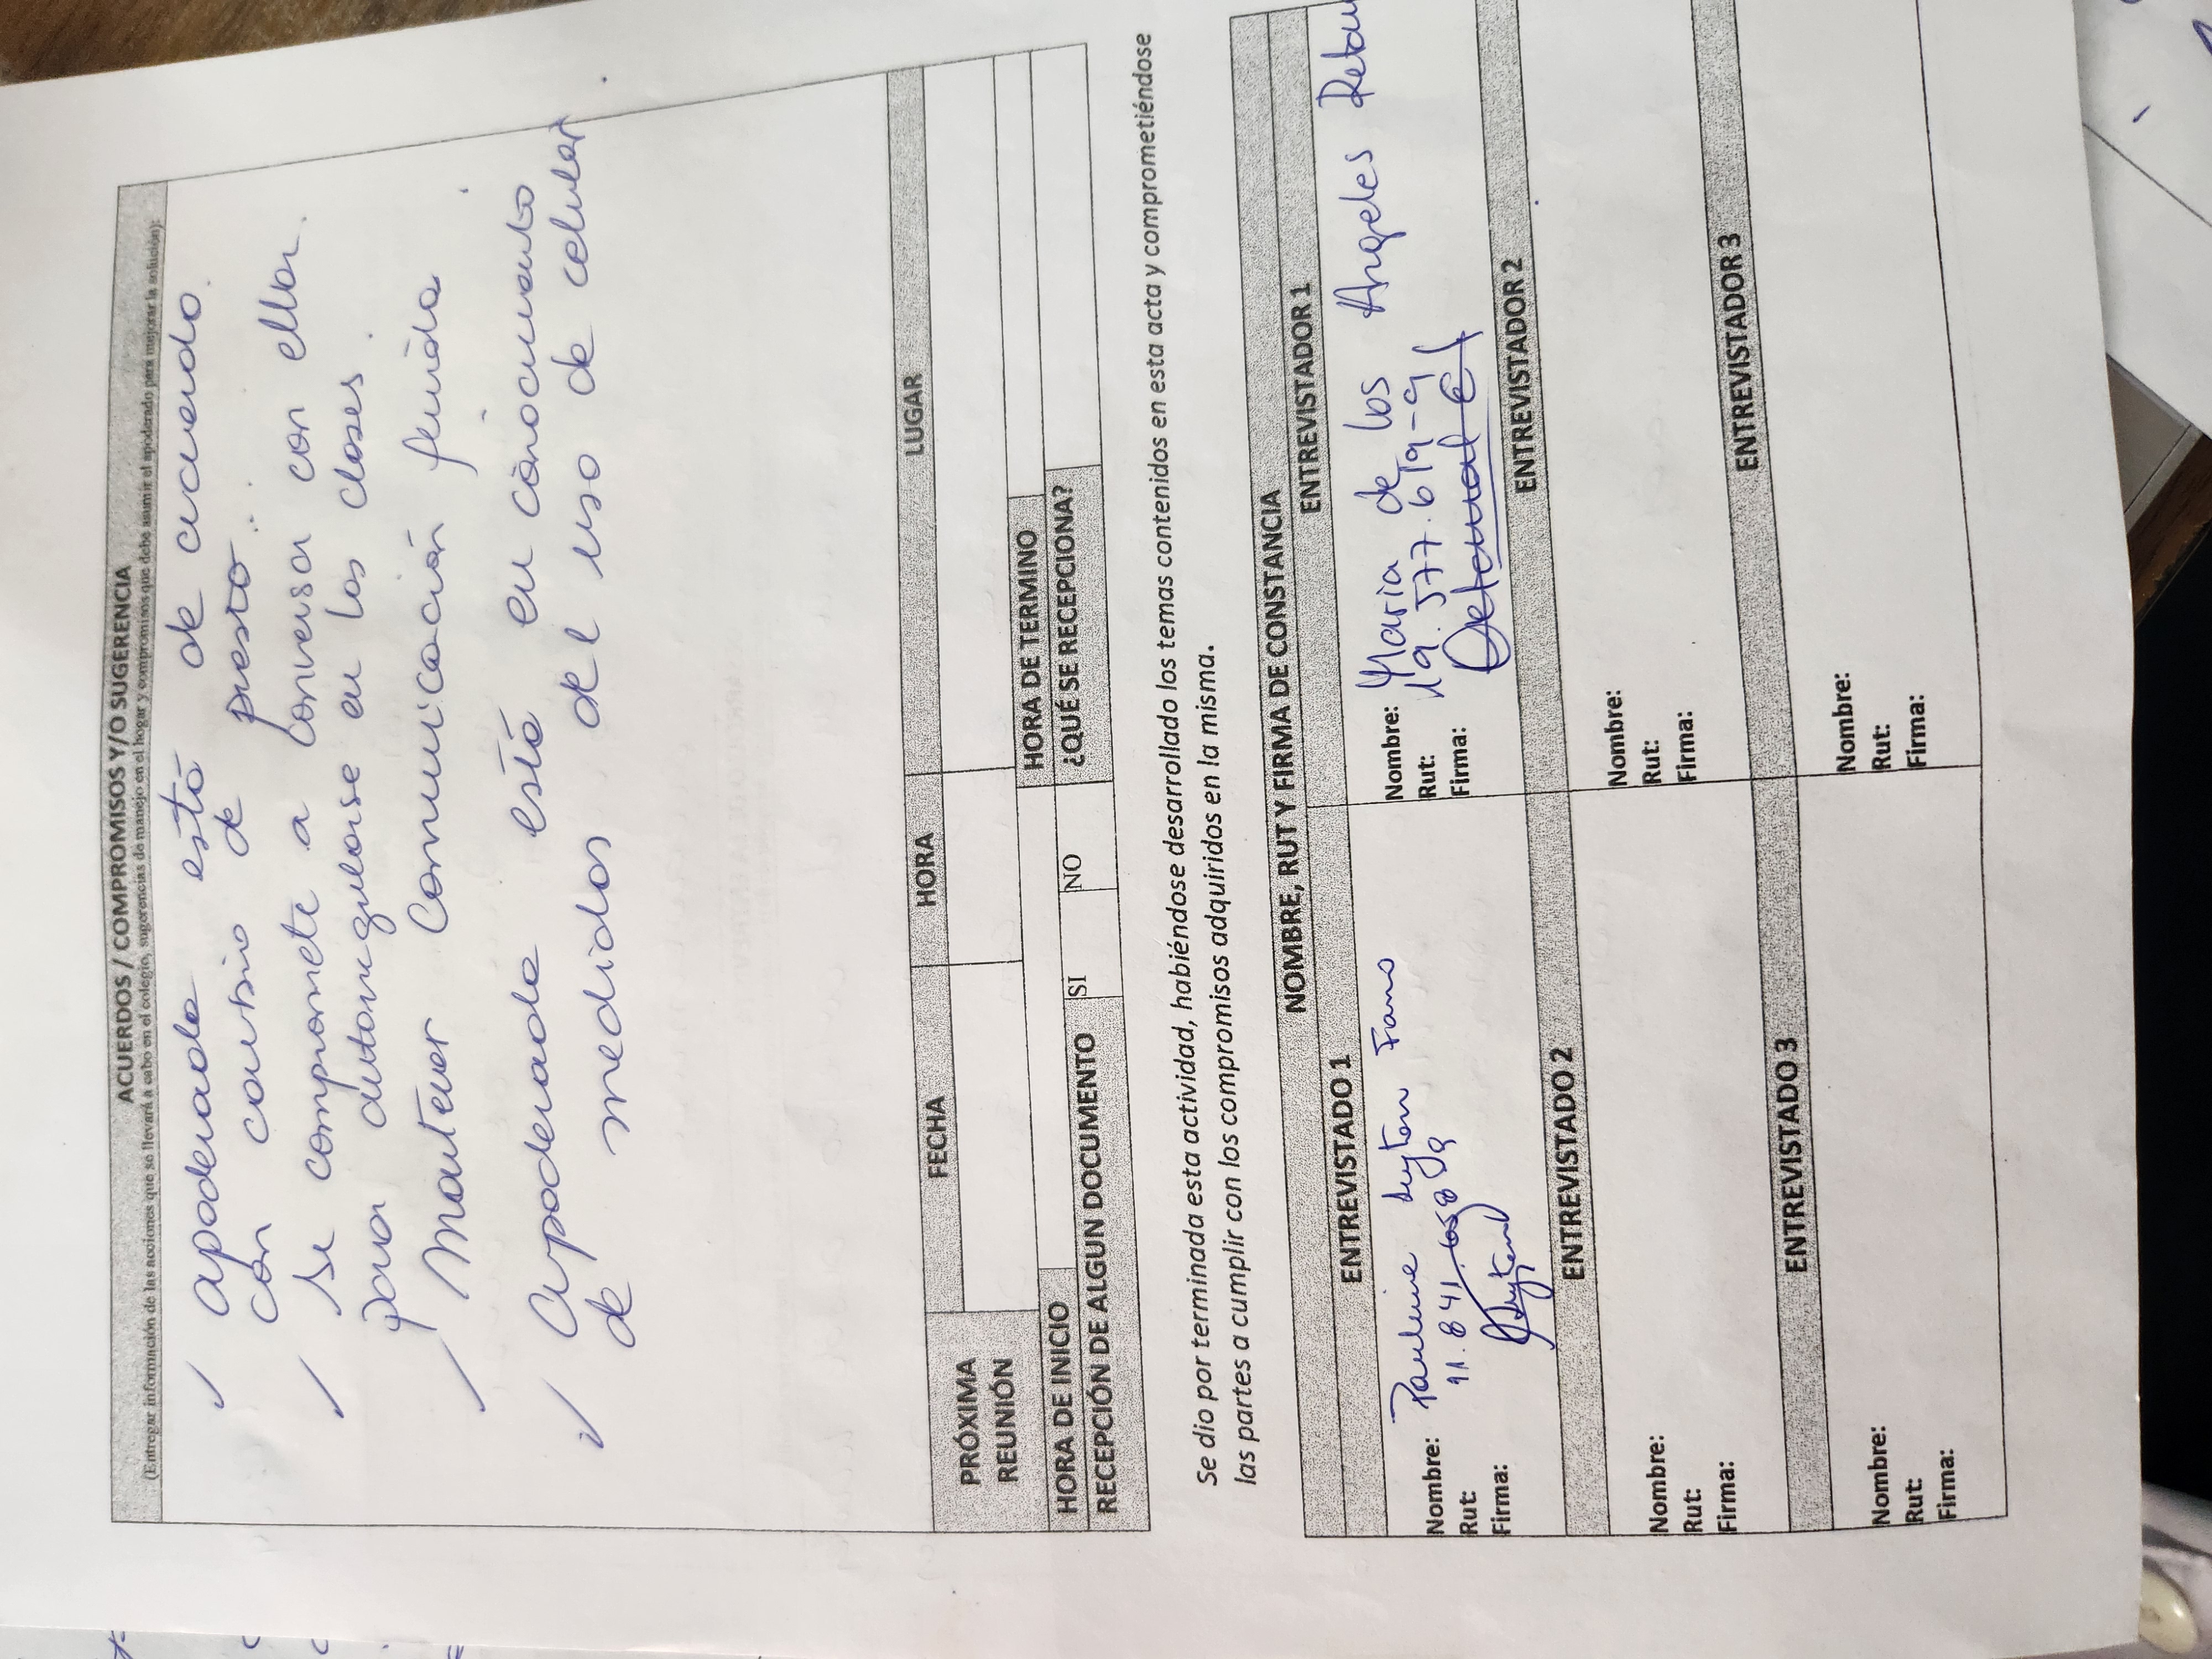 ACUERDOS / COMPROMISOS Y/O SUGERENCIA
(Entregar información de las acciones que se llevará a cabo en el colegio, sugerencias de manejo en el hogar y compromisos que debe asumir el apoderado para mejorar la solución):
✓ apoderada está de acuerdo
con cambio de puesto.
✓ Se compromete a conversar con ella
para autoregularse en las clases.
✓ Mantener Comunicación fluida
✓ Apoderada está en conocimiento
de medidas del uso de celular.
PRÓXIMA REUNIÓN FECHA HORA LUGAR
HORA DE INICIO HORA DE TERMINO
RECEPCIÓN DE ALGUN DOCUMENTO SI NO ¿QUÉ SE RECEPCIONA?
Se dio por terminada esta actividad, habiéndose desarrollado los temas contenidos en esta acta y comprometiéndose
las partes a cumplir con los compromisos adquiridos en la misma.
NOMBRE, RUT Y FIRMA DE CONSTANCIA
ENTREVISTADO 1 ENTREVISTADOR 1
Nombre: Nombre: Maria de los Angeles
Rut: Rut: 19.577.619-9
Firma: Firma:
ENTREVISTADO 2 ENTREVISTADOR 2
Nombre: Nombre:
Rut: Rut:
Firma: Firma:
ENTREVISTADO 3 ENTREVISTADOR 3
Nombre: Nombre:
Rut: Rut:
Firma: Firma: